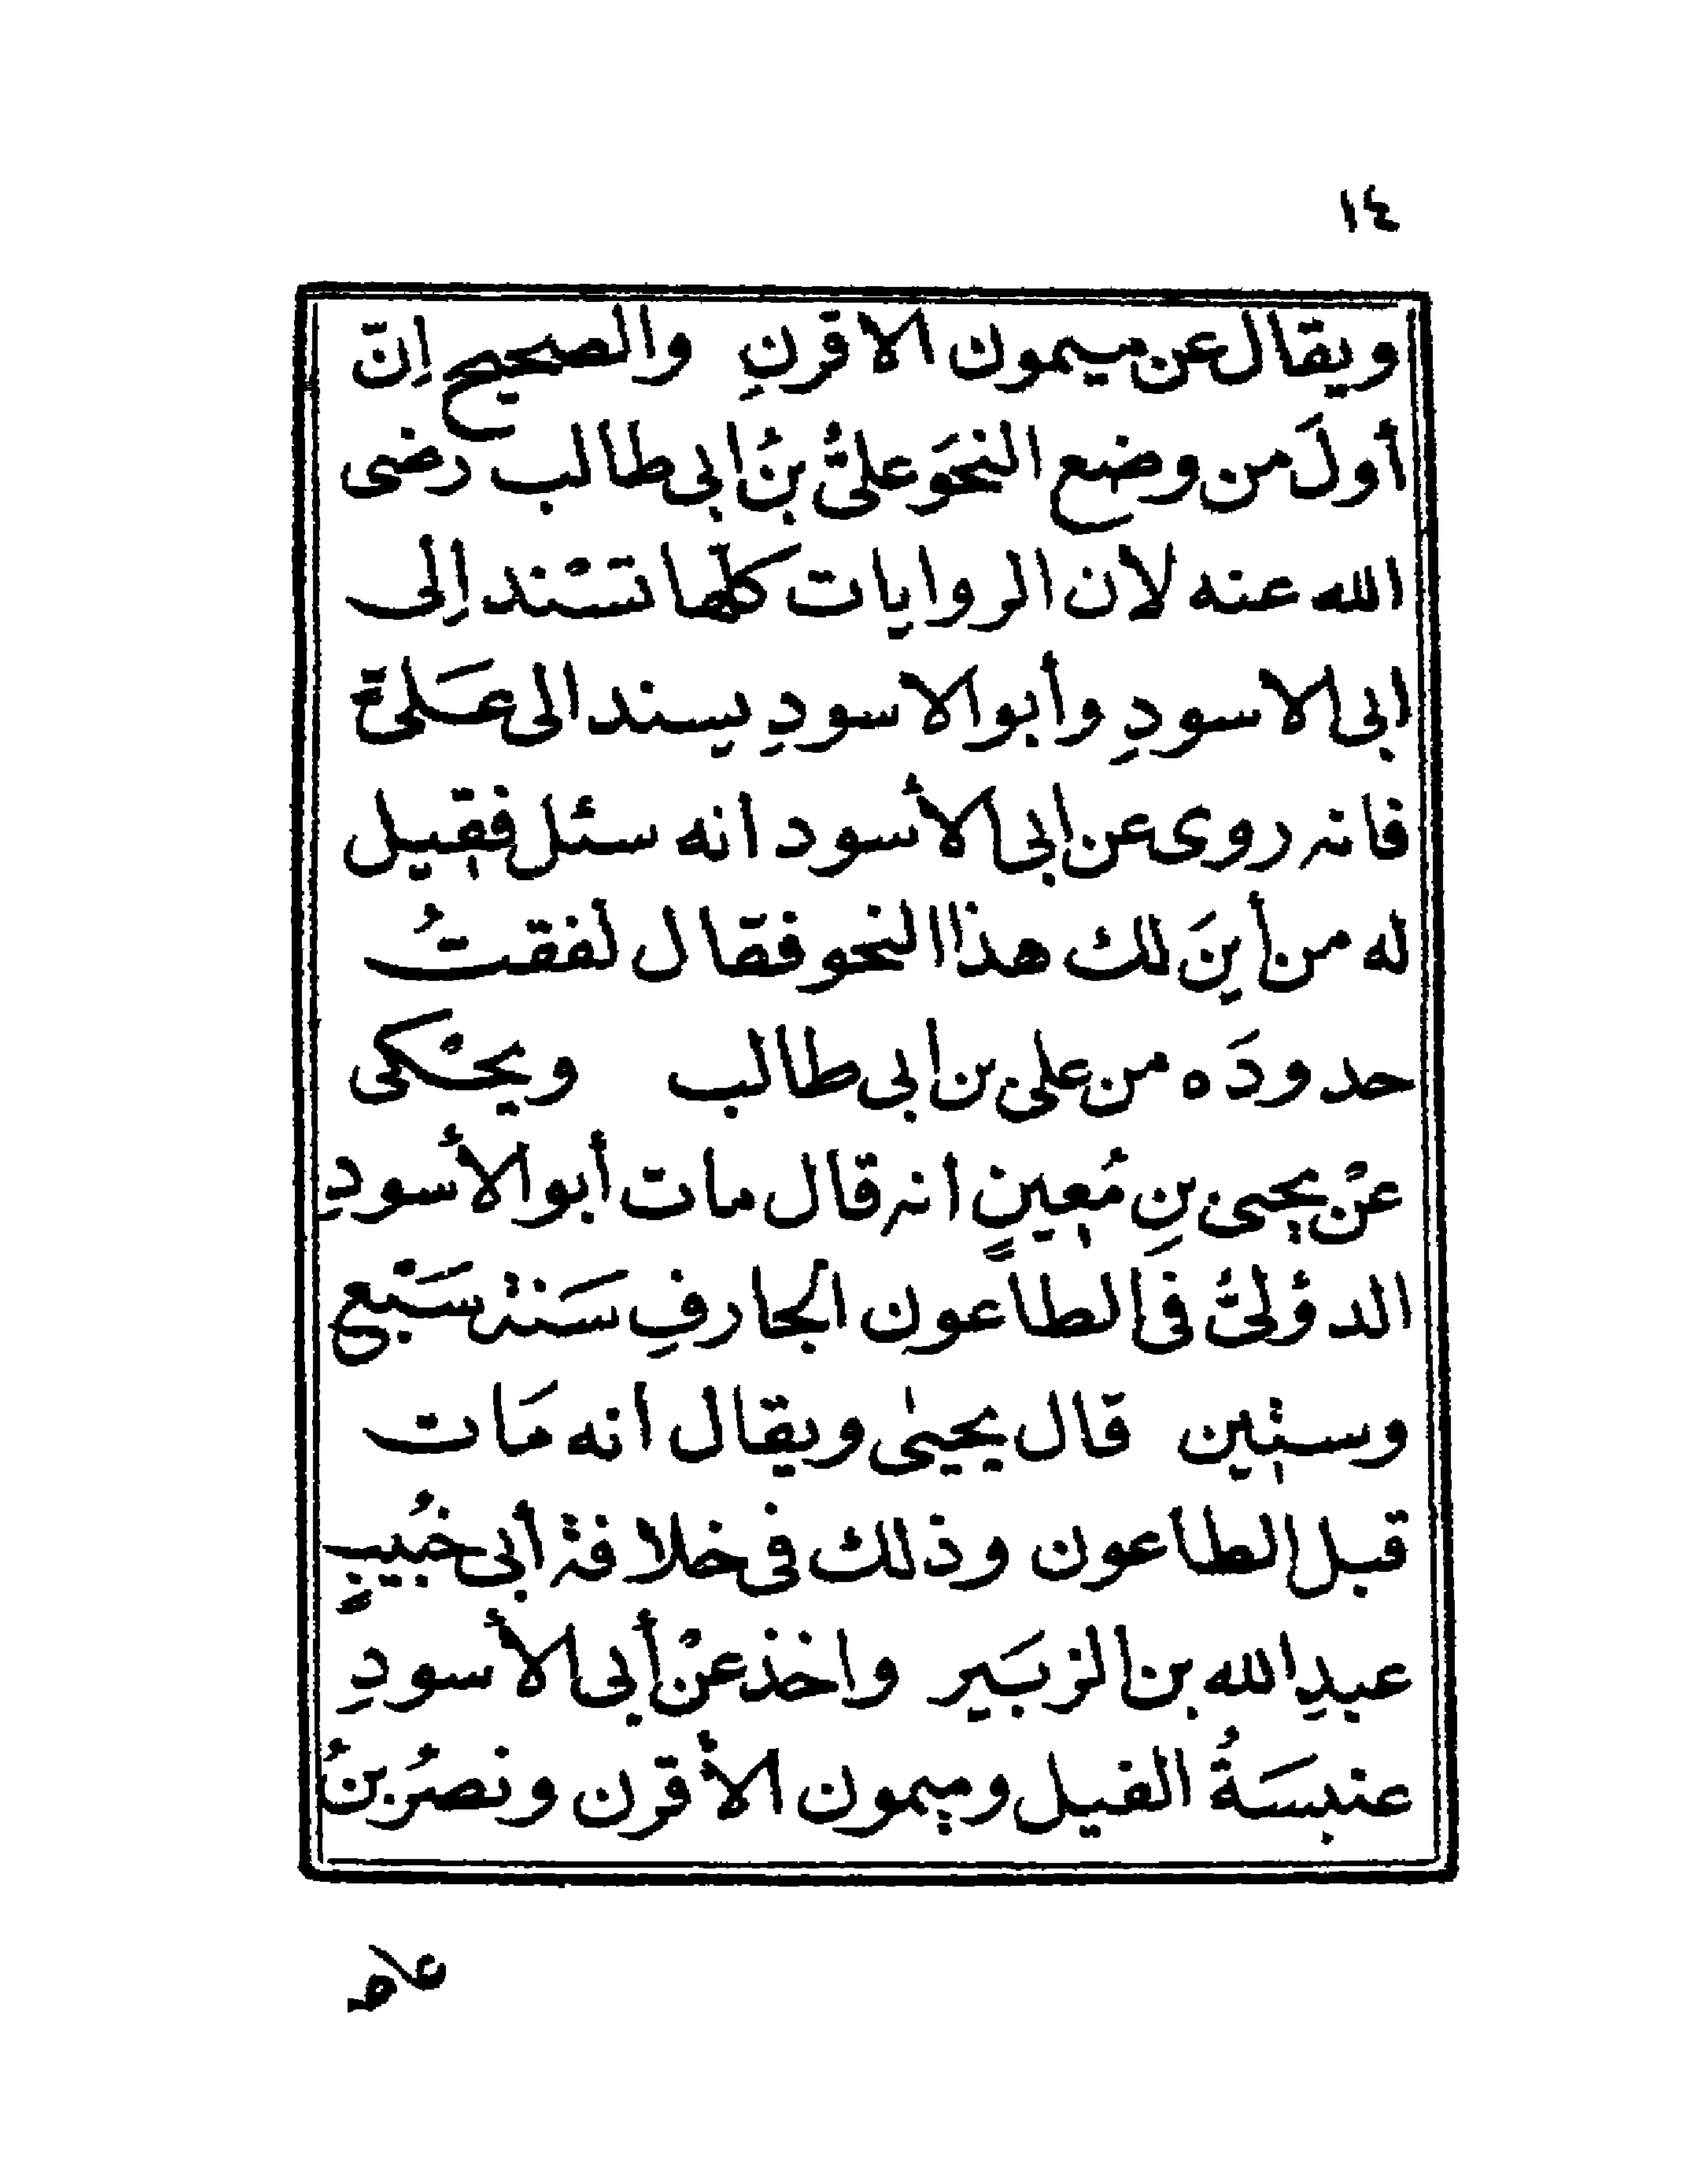 ١٤
ويقال عن ميمون الاقرنِ والصحيح اِنّ
أولَ من وضع النحَو علىُّ بنُ ابى طالب رضى
الله عنه لأن الروايات كلّها تسْند اِلى
ابى الاسودِ وأبو الاسودِ يسند الى عَلىّ
فانه روى عن ابى الأسود انه سئل فقيل
له من أينَ لك هذا النحو فقال لفقتُ
حدودَه من على بن ابى طالب ويحْكى
عنْ يحيى بنِ مُعينٍ انه قال مات أبو الأسودِ
الدؤلىُّ فى الطاعون الجارفِ سَنة سَبْع
وستين قال يحيىٰ ويقال انه مَات
قبل الطاعون وذلك فى خلافة أبى خُبيبٍ
عبدِ الله بن الزبَير واخذ عنْ أبى الأسودِ
عنبسَةُ الفيل وميمون الأقرن ونصرُ بنُ